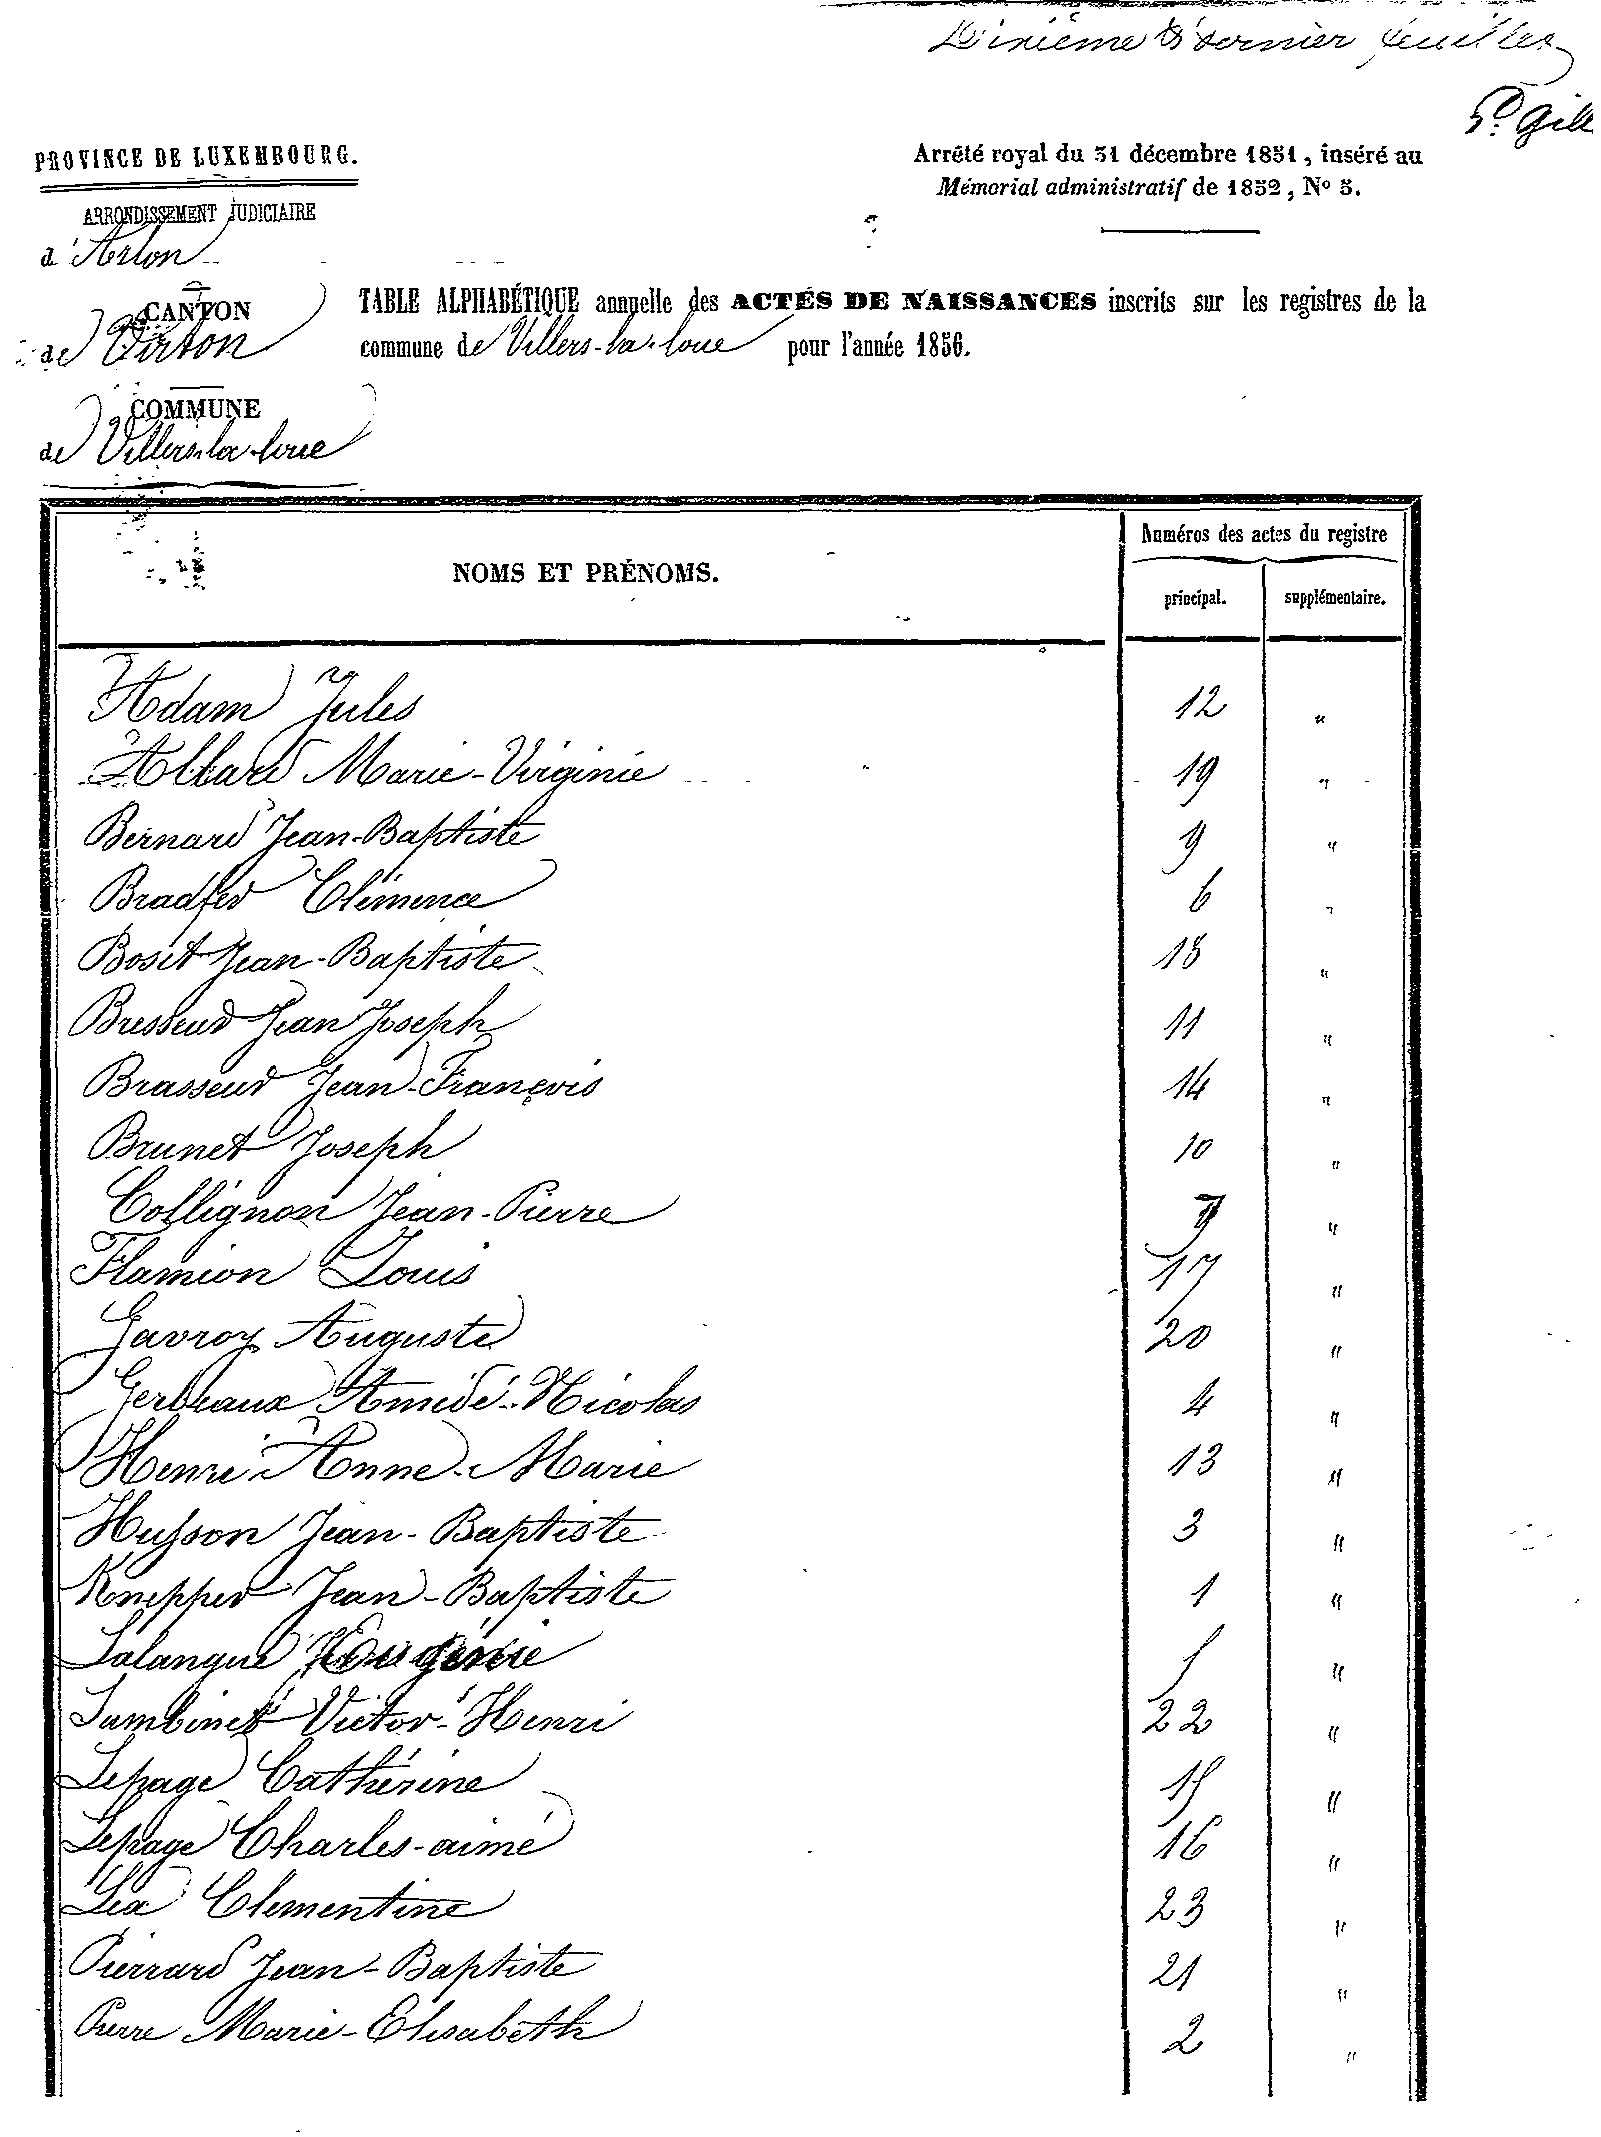 Dixième & dernier feuillet
Gill
PROVINCE DE LUXEMBOURG.
Arrêté royal du 31 décembre 1851, inséré au
Mémorial administratif de 1852, No 5.
ARRONDISSEMENT JUDICIAIRE
d'Arlon
CANTON
de Virton
TABLE ALPHABÉTIQUE annuelle des ACTES DE NAISSANCES inscrits sur les registres de la
commune de Villers-la-loue pour l'année 1856.
COMMUNE
de Villers-la-loue
NOMS ET PRÉNOMS.
Numéros des actes du registre
principal. supplémentaire.
Adam Jules 12 "
Allard Marie-Virginie 19 "
Bernard Jean-Baptiste 9 "
Bradfer Clémence 6 "
Bosit Jean-Baptiste 18 "
Bresseur Jean Joseph 11 "
Brasseur Jean-François 14 "
Brunet Joseph 10 "
Collignon Jean-Pierre 7 "
Flamion Louis 17 "
Gavroy Auguste 20 "
Gerbeaux Amédé-Nicolas 4 "
Henri Anne-Marie 13 "
Husson Jean-Baptiste 3 "
Knepper Jean-Baptiste 1 "
Lalangue Eugénie "
Lambinet Victor-Henri 22 "
Lepage Cathérine 15 "
Lepage Charles-aimé 16 "
Lex Clementine 23 "
Pierrard Jean-Baptiste 21 "
Pierre Marie-Elisabeth 2 "